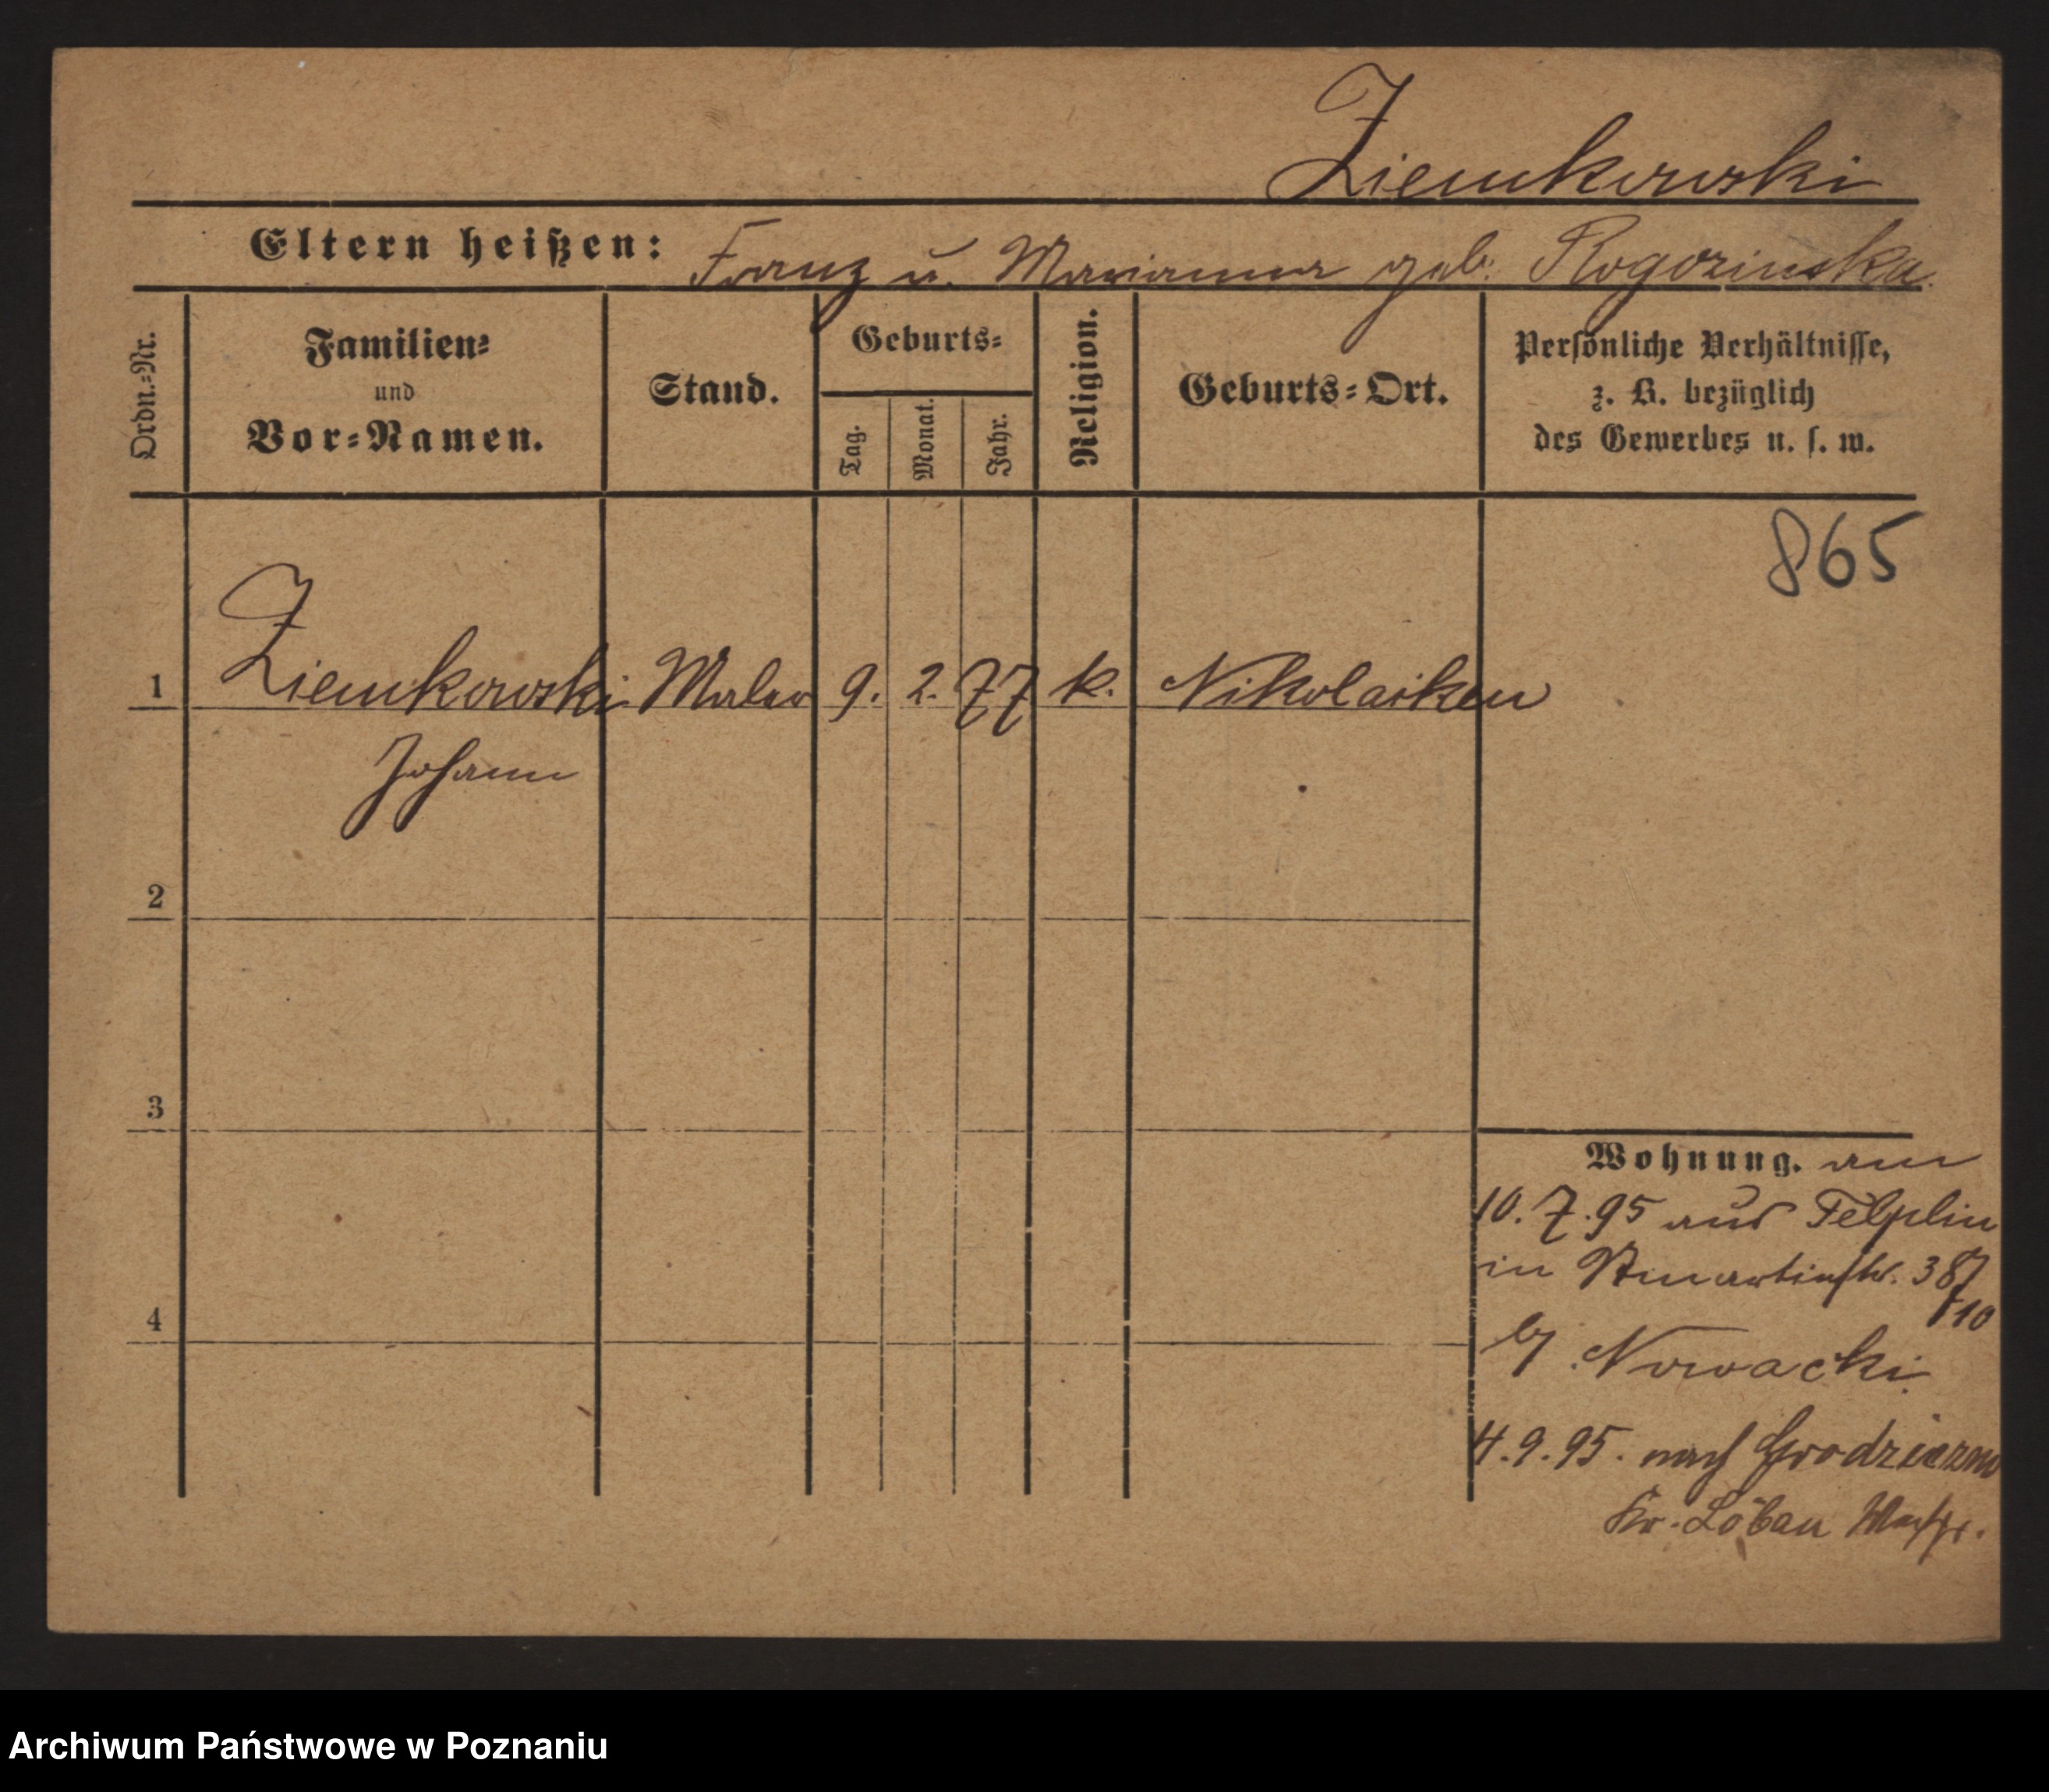 Ziemkowski
Eltern heißen: Franz u. Marianna geb. Rogozinska.
Ordn.-Nr.
Familien-
und
Vor-Namen.
Stand.
Geburts-
Tag.
Monat.
Jahr.
Religion.
Geburts-Ort.
Persönliche Verhältnisse,
z. B. bezüglich
des Gewerbes u. s. w.
865
1 Ziemkowski Maler 9. 2. 77 k. Nikolaiken
Johann
2
3
4
Wohnung. am
10.7.95 aus Pelplin
in Stmartinstr. 38
b/ Nowacki
4.9.95. nach Grodziczno
Kr. Löbau Westpr.
Archiwum Państwowe w Poznaniu